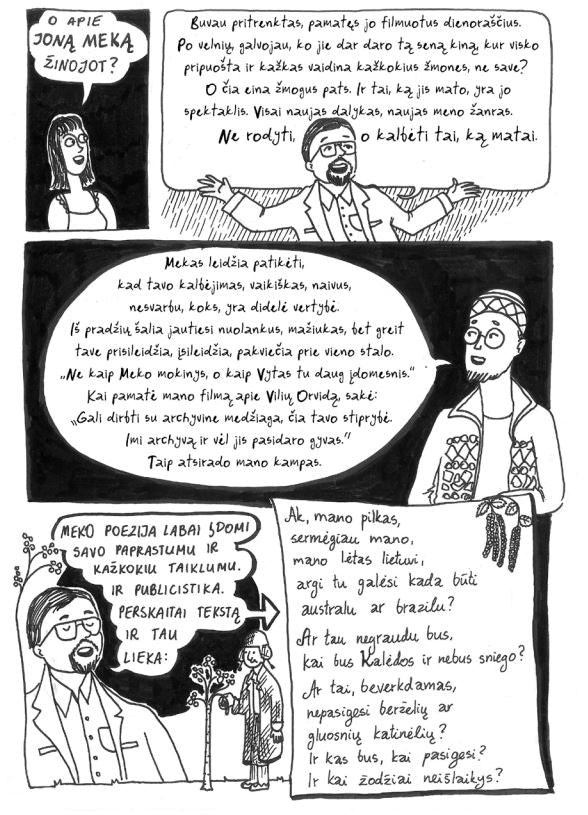 O APIE
JONĄ MEKĄ
ŽINOJOT?
Buvau pritrenktas, pamatęs jo filmuotus dienoraščius.
Po velnių, galvojau, ko jie dar daro tą seną kiną, kur visko
pripuošta ir kažkas vaidina kažkokius žmones, ne save?
O čia eina žmogus pats. Ir tai, ką jis mato, yra jo
spektaklis. Visai naujas dalykas, naujas meno žanras.
Ne rodyti, o kalbėti tai, ką matai.
Mekas leidžia patikėti,
kad tavo kalbėjimas, vaikiškas, naivus,
nesvarbu, koks, yra didelė vertybė.
Iš pradžių šalia jautiesi nuolankus, mažiukas, bet greit
tave prisileidžia, įsileidžia, pakviečia prie vieno stalo.
„Ne kaip Meko mokinys, o kaip Vytas tu daug įdomesnis.“
Kai pamatė mano filmą apie Vilių Orvidą, sakė:
„Gali dirbti su archyvine medžiaga, čia tavo stiprybė.
Imi archyvą ir vėl jis pasidaro gyvas.“
Taip atsirado mano kampas.
MEKO POEZIJA LABAI ĮDOMI
SAVO PAPRASTUMU IR
KAŽKOKIU TAIKLUMU.
IR PUBLICISTIKA.
PERSKAITAI TEKSTĄ
IR TAU
LIEKA:
Ak, mano pilkas,
sermėgiau mano,
mano lėtas lietuvi,
argi tu galėsi kada būti
australu ar brazilu?
Ar tau negraudu bus,
kai bus Kalėdos ir nebus sniego?
Ar tai, beverkdamas,
nepasigesi berželių ar
gluosnių katinėlių?
Ir kas bus, kai pasigesi?
Ir kai žodžiai neišlaikys?